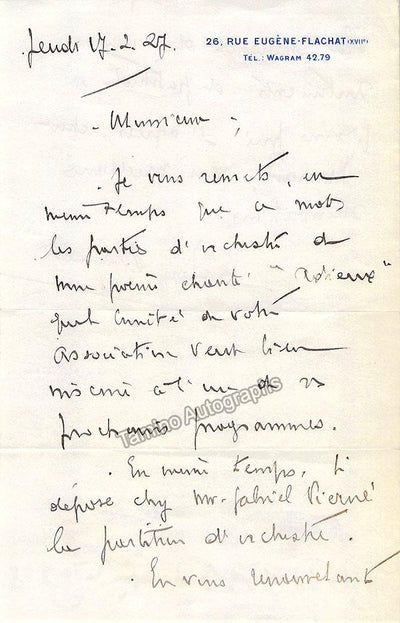 Jeudi 17.2.27.
26, RUE EUGÈNE-FLACHAT (XVIIe)
TÉL.: WAGRAM 42.79
Monsieur,
Je vous remets, en
même temps que ce mot
les parties d'orchestre de
mon poème chanté "Adieux"
que le Comité de votre
Association veut bien
inscrire à l'un de ses
prochains programmes.
Tamino Autographs
En même temps, je
dépose chez Mr Gabriel Pierné
la partition d'orchestre.
En vous renouvelant